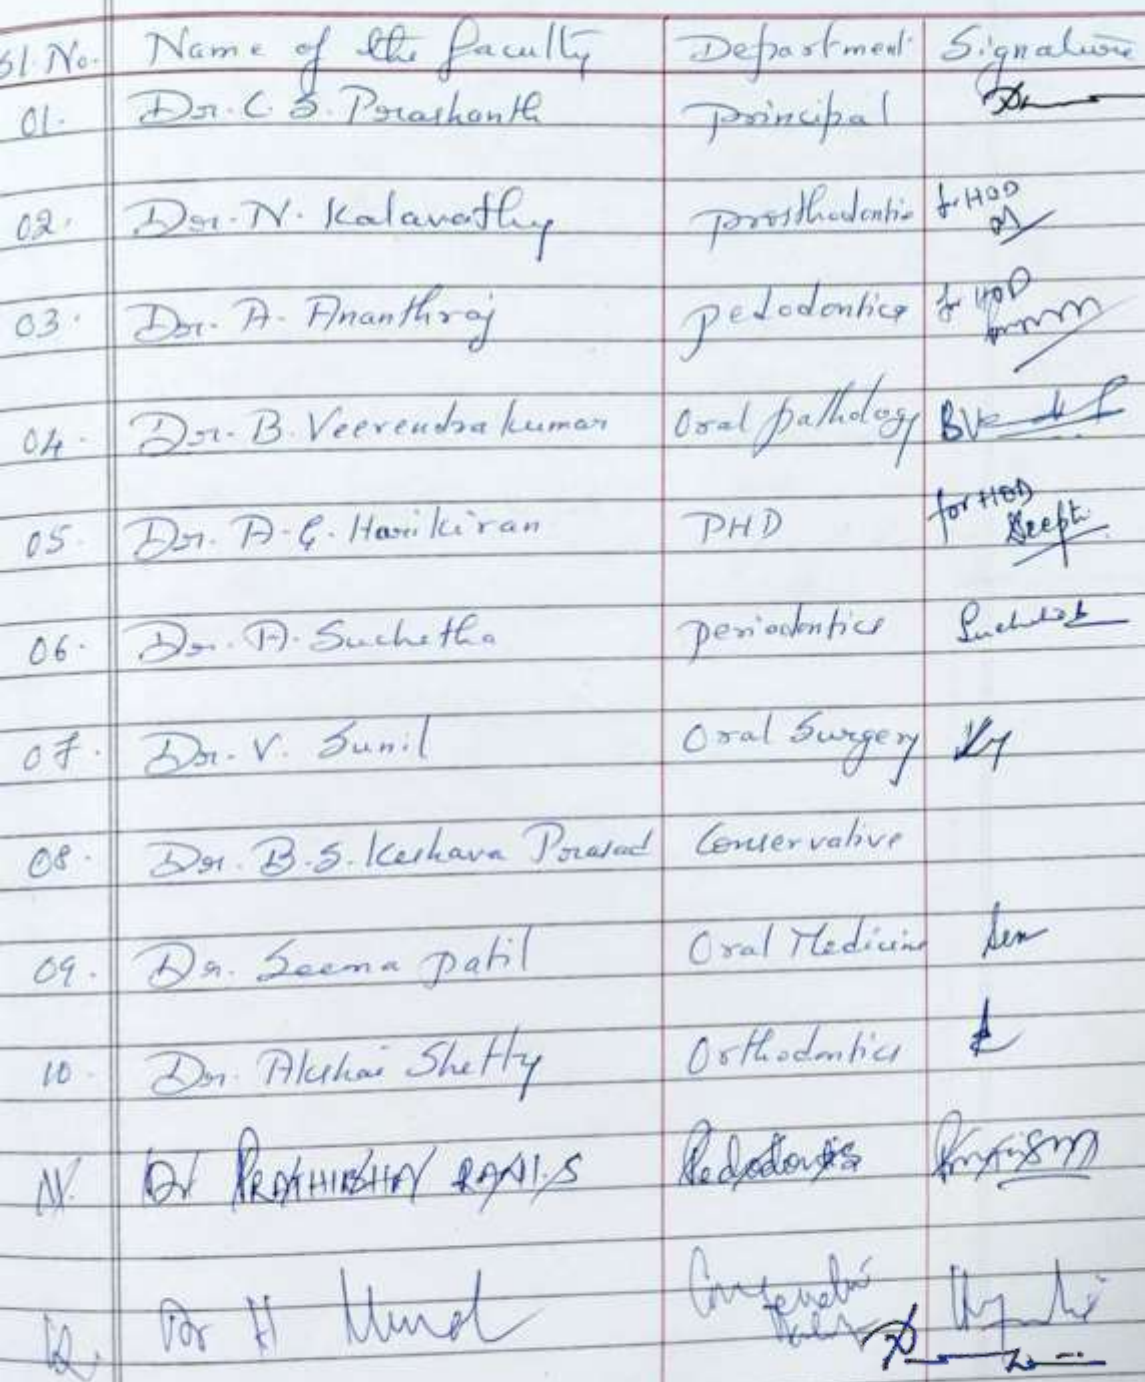 Sl. No. Name of the faculty Department Signature
01. Dr. C. S. Prashanth Principal
02. Dr. N. Kalavathy Prosthodontic for HOD
03. Dr. A. Ananthraj Pedodontics for HOD
04. Dr. B. Veerendrakumar Oral pathology BVK
05. Dr. A. G. Harikiran PHD for HOD
Deepti
06. Dr. A. Suchetha Periodontics
07. Dr. V. Sunil Oral Surgery
08. Dr. B. S. Keshava Prasad Conservative
09. Dr. Seema Patil Oral Medicine
10. Dr. Akshai Shetty Orthodontics
11. Dr PRATHIBHA RANI.S
Dr H